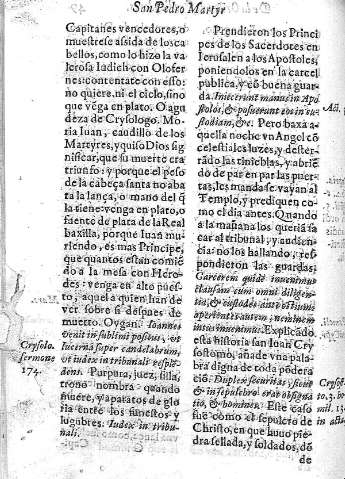 San Pedro Martyr
Capitanes vencedores, o
muestrese assida de los ca
bellos, como lo hizo la va
lerosa Iudich con Olofer
nes: contentate con esso:
no quiere, ni el cielo, sino
que vēga en plato. O agu
deza de Crysologo. Mo-
ria Iuan, caudillo de los
Martyres, y quiso Dios sig
nificar, que su muerte era
triunfo: y porque el peso
de la cabeça santa no aba
ta la lança, o mano del q̄
la tiene: venga en plato, o
fuente de plata de la Real
baxilla, porque Iuan mu
riendo, es mas Principe,
que quantos estan comiē
do a la mesa con Hero-
des: venga en alto pues-
to, aquel a quien han de
ver sobre si despues de
muerto. Oygan. Ioannes
erexit in sublimi positus, et
lucerna super candelabrum,
et iudex in tribunali resplē
dent. Purpura, juez, silla,
trono nombra quando
muere, y aparatos de glo
ria entre los funestos y
lugubres. Iudex in tribu-
nali.
Crysolo.
sermone
174.
Prendieron los Princi
pes de los Sacerdotes en
Ierusalen a los Apostoles,
poniendolos en la carcel
publica, y cō buena guar
da. Iniecerunt manus in Apo
stolos, & posuerunt eos in cu
stodiam, &c. Pero baxa a-
quella noche vn Angel cō
celestiales luzes, y dester-
rādo las tinieblas, y abriē
do de par en par las puer-
tas, les manda se vayan al
Templo, y prediquen co-
mo el dia antes. Quando
a la mañana los queria sa
car al tribunal, y audien-
cia: no los hallando, res-
pondieron las guardas:
Carcerem quidē inuenimus
clausum cum omni diligen-
tia, & custodes ante ostium:
aperientes autem, neminem
intus inuenimus. Explicādo
esta historia san Iuan Cry
sostomo, añade vna pala-
bra digna de toda pōdera
ciō. Duplex securitas, sicut
& in sepulcro erat obsigna
tio, & homines. Este caso
fue como el sepulcro de
Christo, en que huuo pie
dra sellada, y soldados, dō
de
Crysos
to. 3. to
mil. 13.
in act.